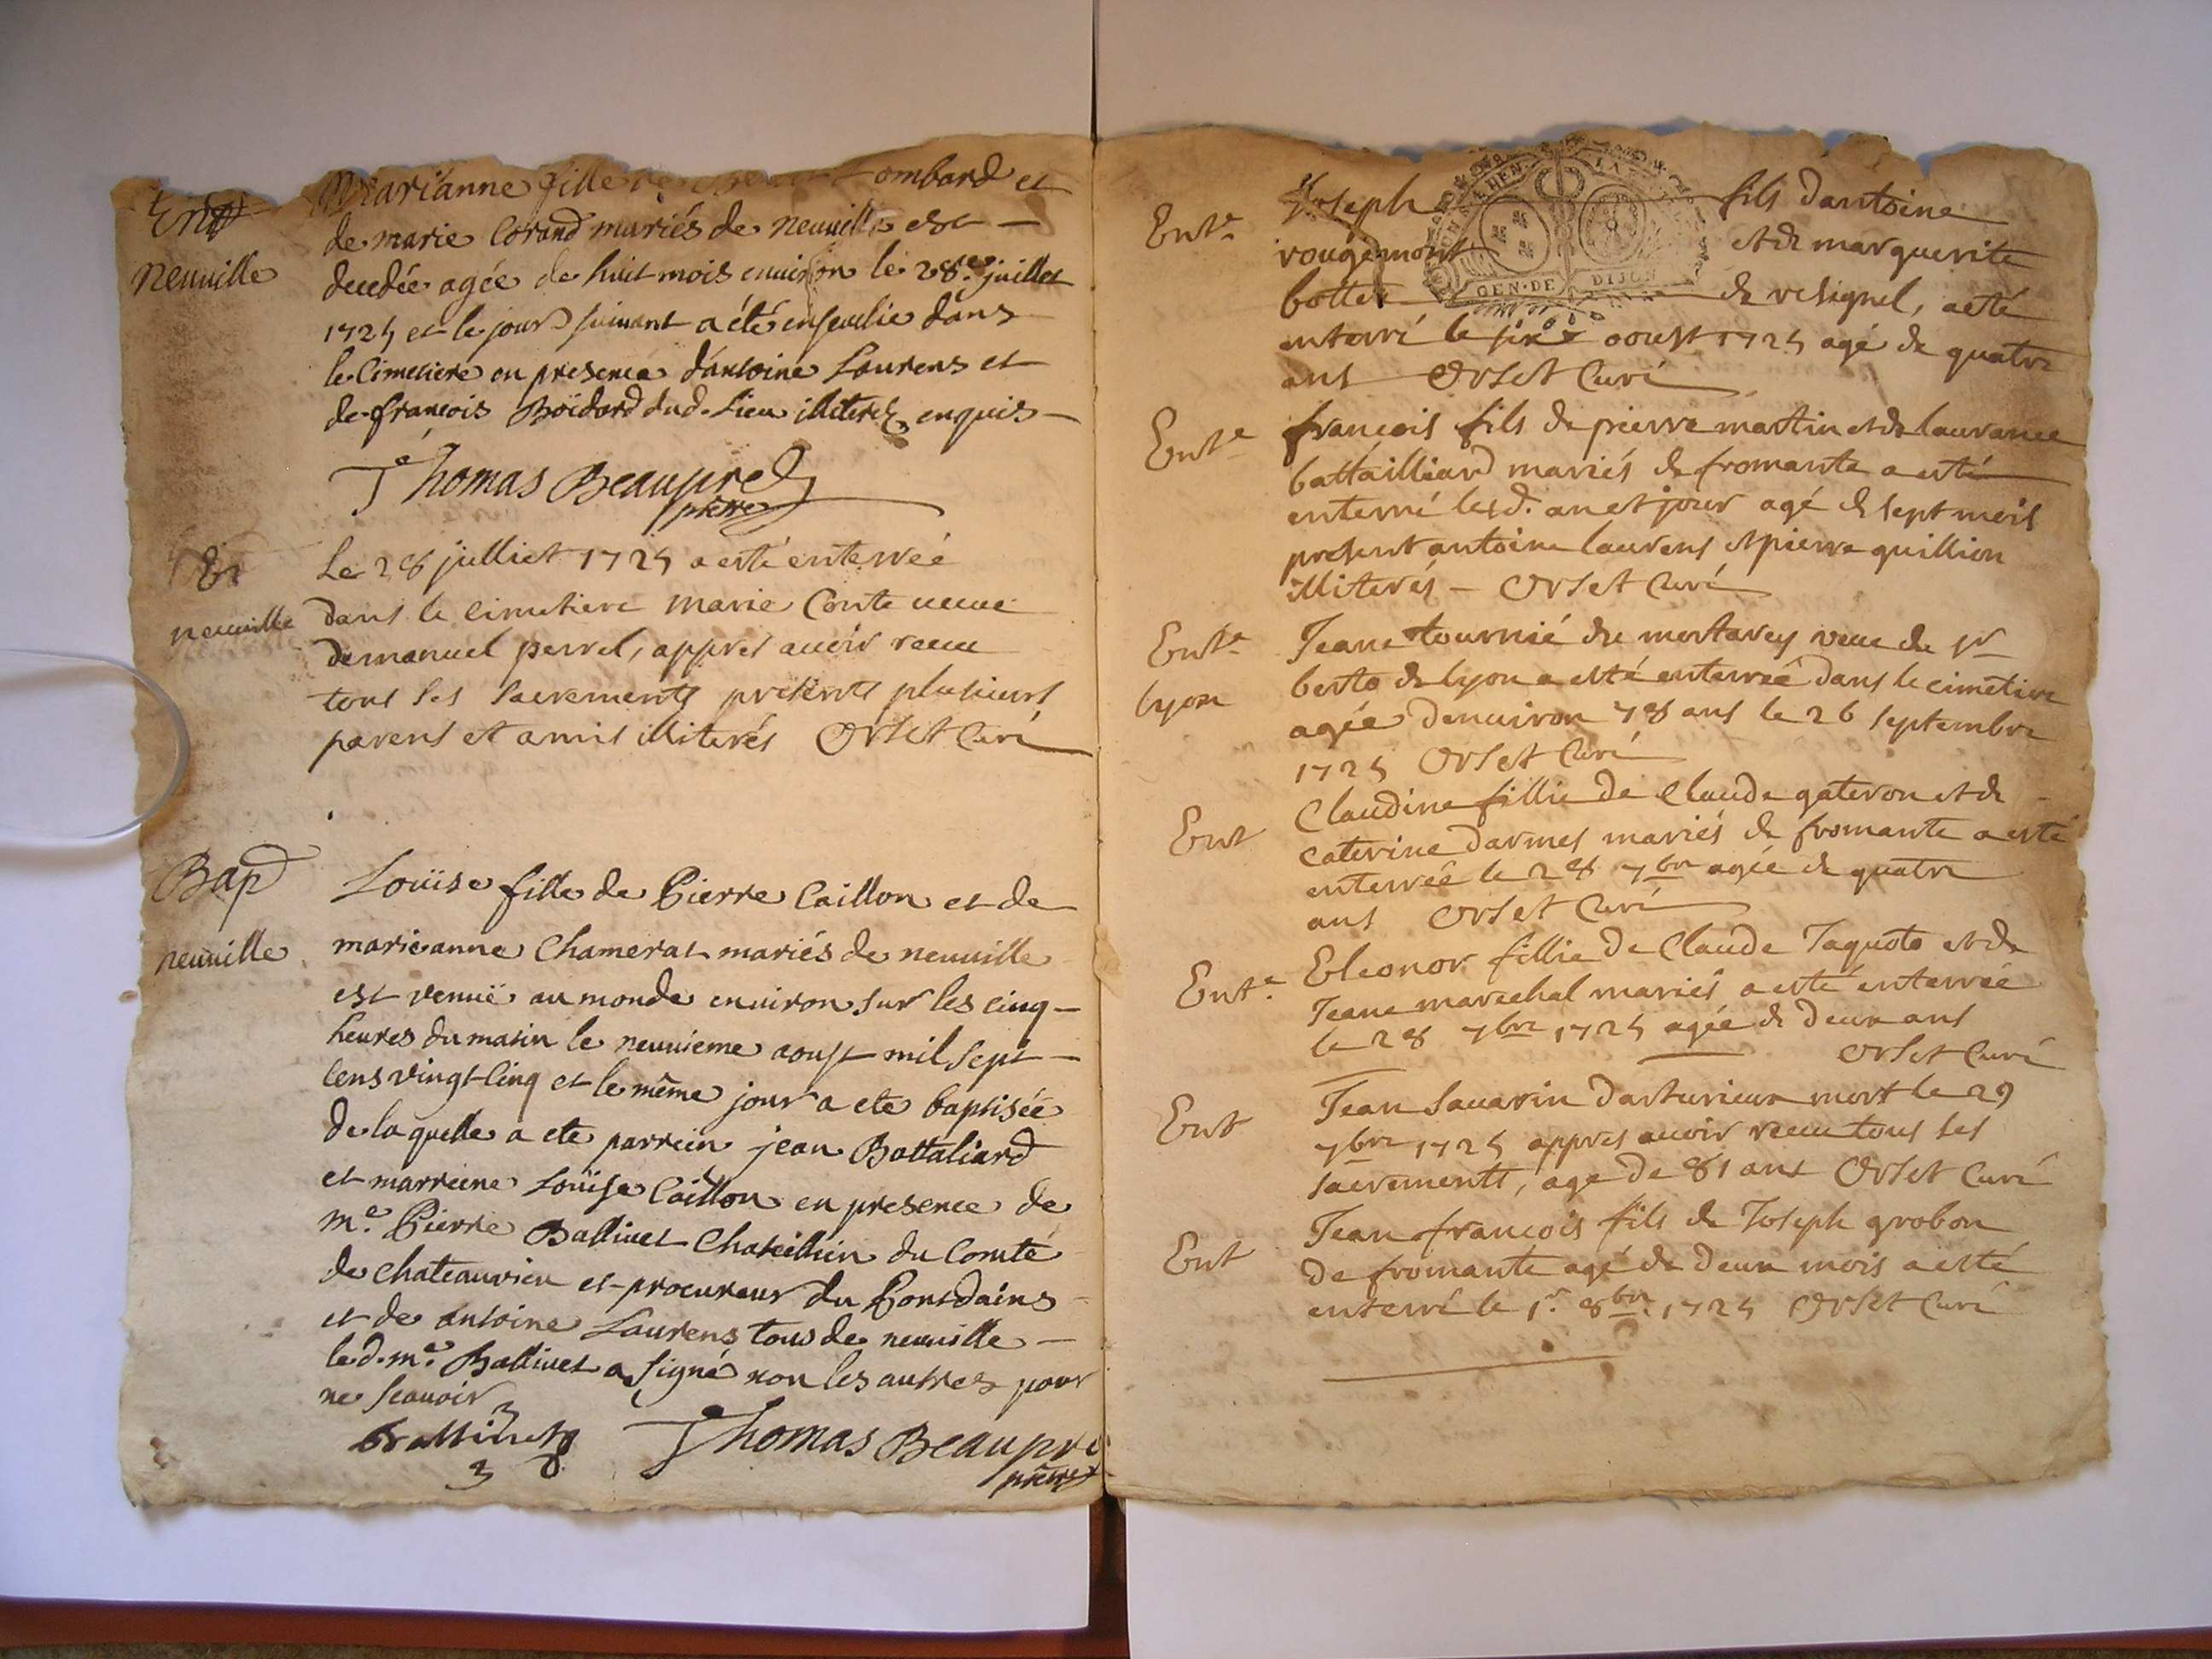 Ent
neuuille
Marianne fille de Lombard et
de marie Corand mariés de neuuille est
decedée agée de huit mois enuiron le 28e juillet
1725 et le jour suiuant a été enseuelie dans
le Cimetiere en presence d'antoine Laurens et
de françois Boidard dud. Lieu illiterez enquis
Thomas Beaupred
prêtre
neuuille
Le 28 julliet 1725 a esté enterreé
dans le cimetiere marie Conte ueuue
demanuel perrel, appres auoir receu
tous ses sacrements presents plusieurs
parens et amis illiterés Orset Curé
Bap
neuuille
Loüise fille de Pierre Caillon et de
marieanne Chamerat mariés de neuuille
est venuë au monde enuiron sur les cinq
heures du matin le neuuieme aoust mil sept
cens vingt-cinq et le même jour a ete baptisée
de laquelle a ete parrein jean Battaliard
et marreine Loüise Caillon en presence de
me. Pierre Balliuet Chatellin du Comté
de chateauvieu et procureur du Pontdains
et de antoine Laurens tous de neuuille
led. me. Balliuet a signé non les autres pour
ne scauoir
Balliuet Thomas Beaupre
prêtre
Ente
Joseph fils dantoine
rougemont et de marguerite
bottex de resignel, a esté
enterré le sixe aoust 1725 agé de quatre
ans Orset Curé
Ente
francois fils de pierre martin et de laurance
battailliard mariés de fromante a esté
enterré lesd. an et jour agé de sept mois
present antoine laurens et pierre quillion
illiterés - Orset Curé
Ente
lyon
Jeane tournié de mortarey veue de sr
berto de lyon a esté enterreé dans le cimetiere
agée denuiron 78 ans le 26 septembre
1725 Orset Curé
Ent
Claudine fillie de Claude gateron et de
caterine darmes mariés de fromante a esté
enterreé le 28 7bre agée de quatre
ans Orset Curé
Ente
Eleonor fillie de Claude Jaquoto et de
Jeane marechal mariés a esté enterreé
le 28 7bre 1725 agée de deux ans
Orset Curé
Ent
Jean Sauarin darturieux mort le 29
7bre 1725 appres auoir receu tous ses
sacrements, age de 81 ans Orset Curé
Ent
Jean francois fils de Joseph grobon
de fromante agé de deux mois a esté
enterré le 1r. 8bre. 1725 Orset Curé
GEN · DE DIJON